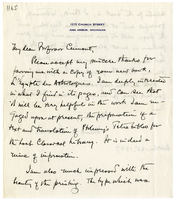 1115 CHURCH STREET
ANN ARBOR, MICHIGAN
My dear Professor Cumont,
Please accept my sincere thanks for
favoring me with a copy of your new work,
L'Égypte des Astrologues. I am deeply interested
in what I find in its pages, and can see that
it will be very helpful in the work I am en-
gaged upon at present, the preparation of a
text and translation of Ptolemy's Tetrabiblos for
the Loeb Classical Library. It is indeed a
mine of information.
I am also much impressed with the
beauty of the printing. The type which was